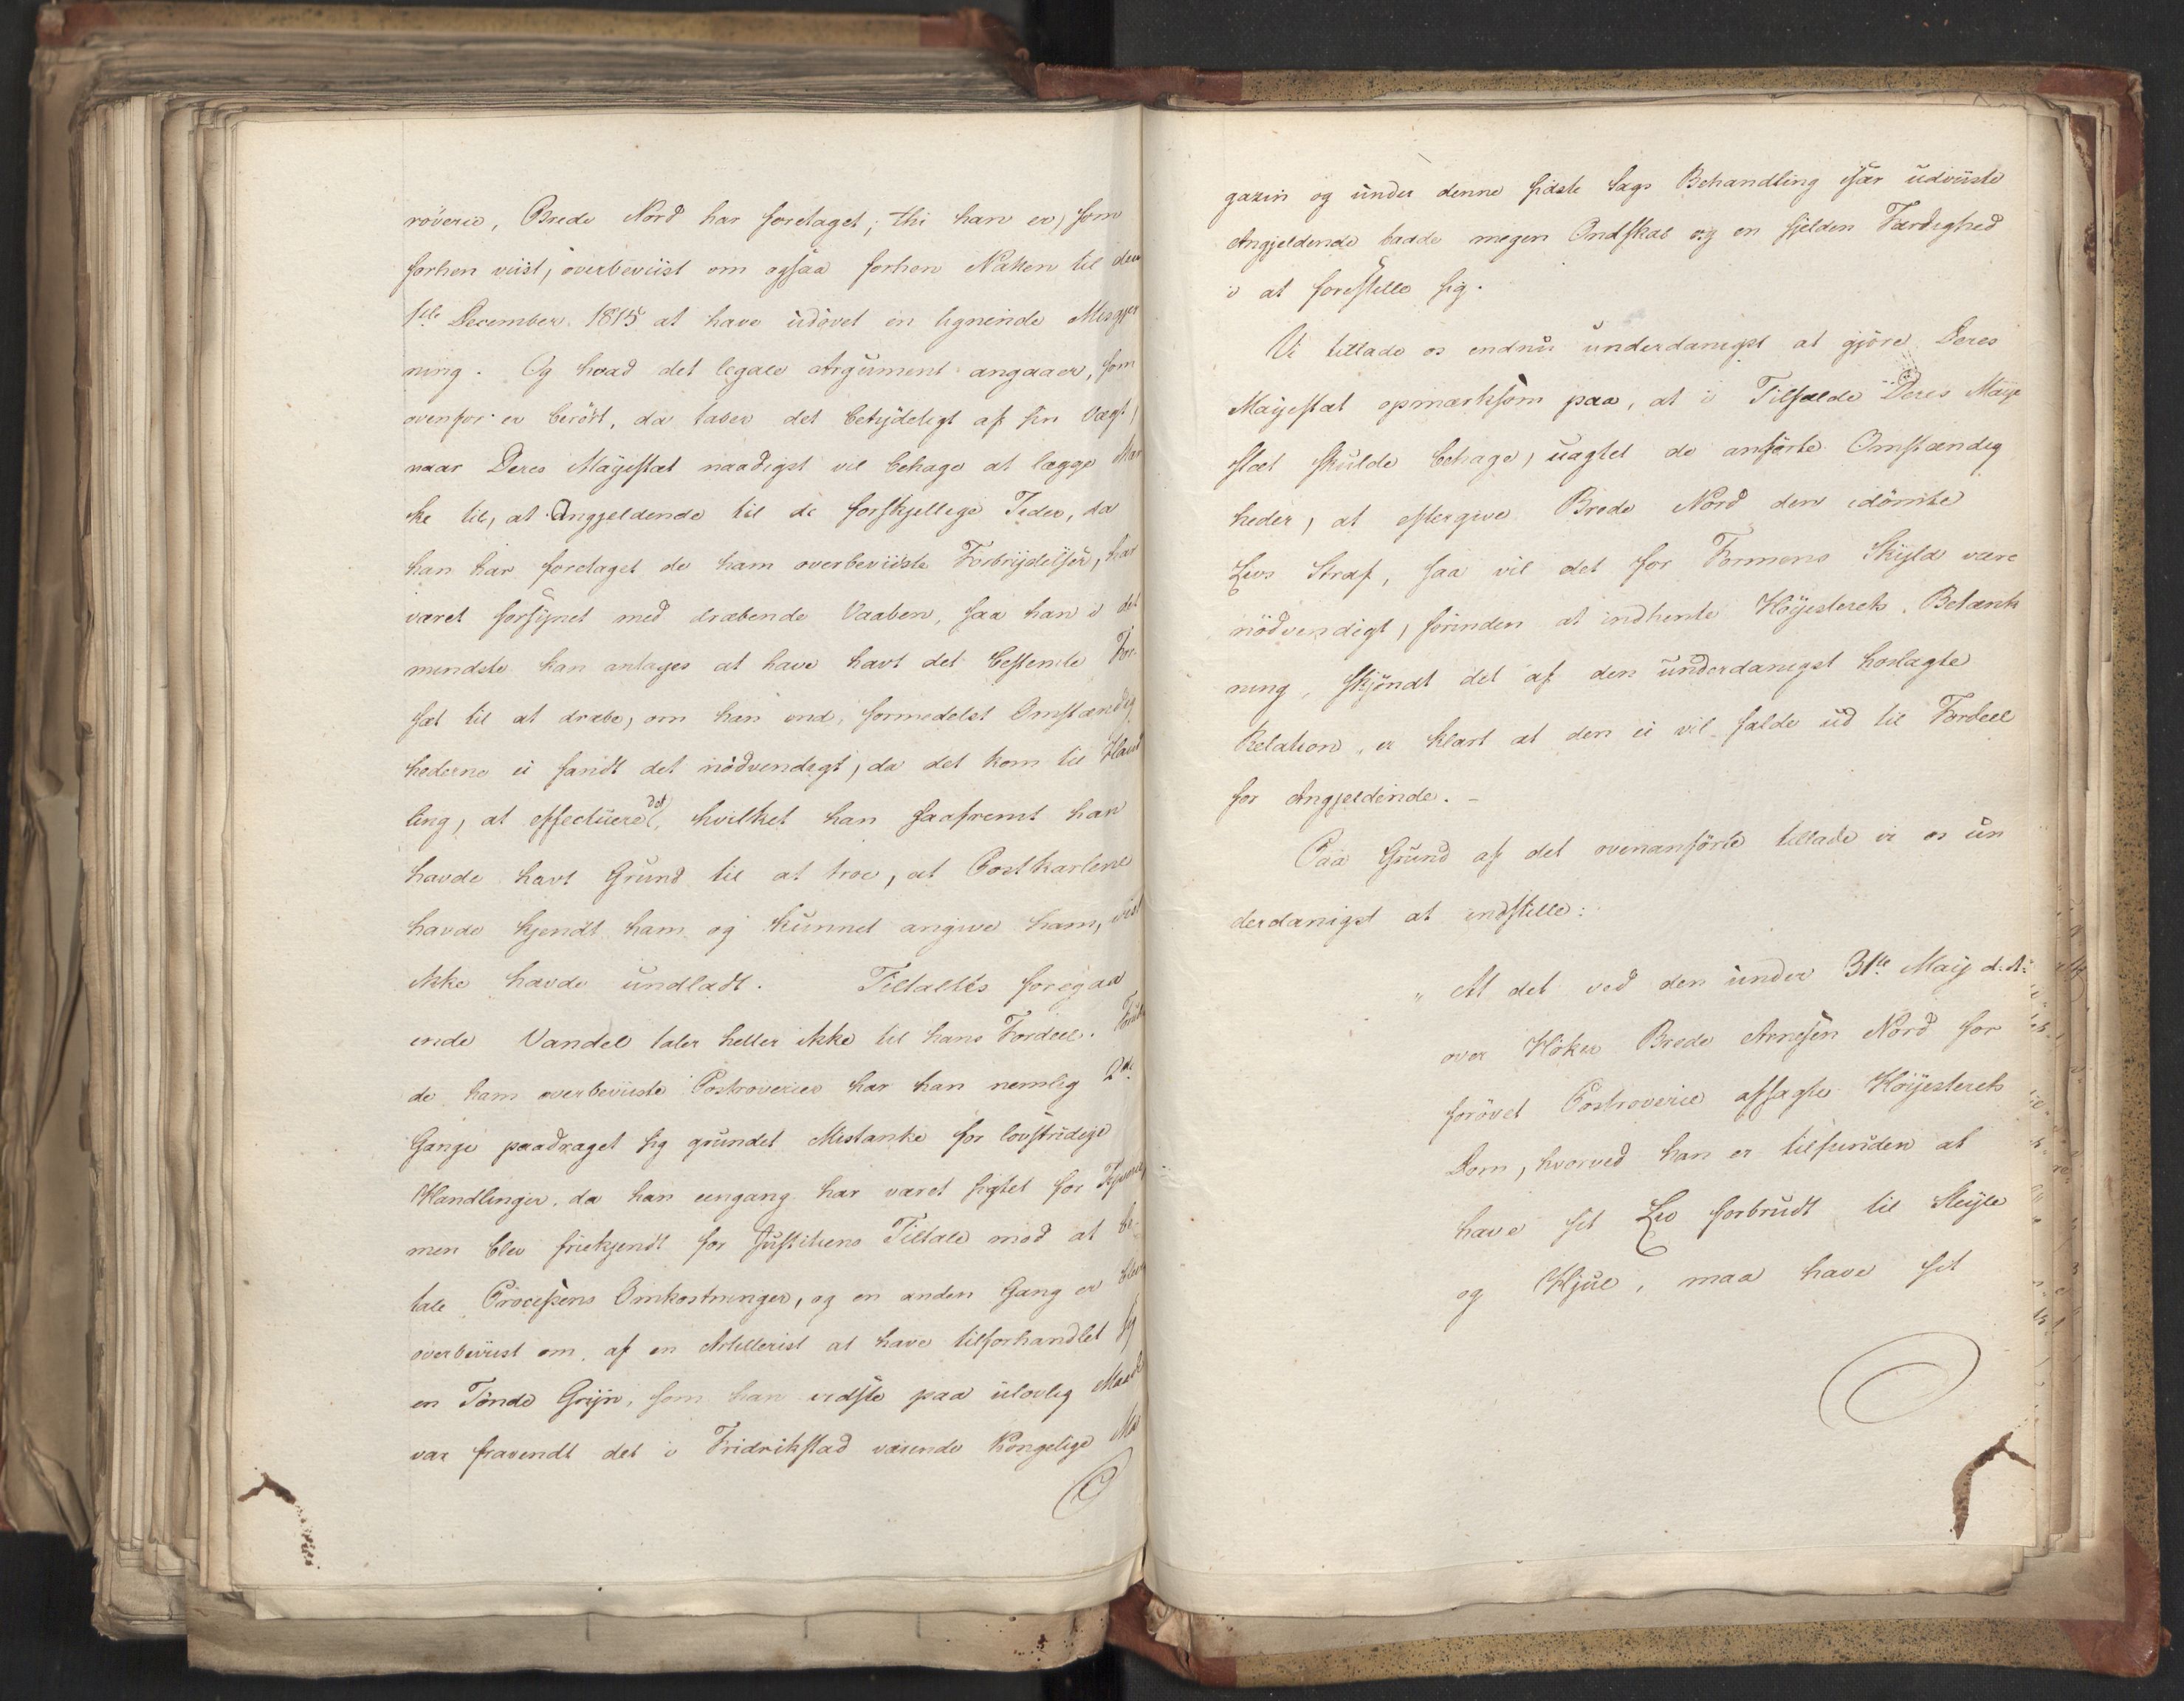 röverie, Brede Nord har foretaget; thi han er, som
forhen viist, overbeviist om ogsaa forhen Natten til den
1ste December 1815 at have udövet en lignende Misgjer
ning. Og hvad det legale Argument angaaer, som
ovenfor er berört, da taber det betydeligt af sin Vægt,
naar Deres Majestæt naadigst vil behage at lægge Mær
ke til, at Angjeldende til de forskjellige Tider, da
han har foretaget de ham overbeviiste Forbrydelser, har
været forsynet med dræbende Vaaben, saa han i det
mindste kan antages at have havt det bestemte For-
sæt til at dræbe, om han end, formedelst Omstændig
hederne ei fandt det nödvendigt, da det kom til Hand
ling, at effectuere det, hvilket han saafremt han
havde havt Grund til at troe, at Postkarlene
havde kjendt ham og kunnet angive ham, vist
ikke havde undladt. Tiltaltes foregaa
ende Vandel taler heller ikke til hans Fordeel. Foruden
de ham overbeviiste Postroverier har han nemlig 2de
Gange paadraget sig grundet Mistanke for lovstridige
Handlinger, da han eengang har været sigtet for Tyverie,
men blev friekjendt for Justitiens Tiltale mod at be-
tale Processens Omkostninger, og en anden Gang er bleven
overbeviist om, af en Artillerist at have tilforhandlet sig
en Tönde Gryn, som han vidste paa ulovlig Maade
var fravendt det i Fridrikstad værende Kongelige Ma
gazin og under denne sidste Sags Behandling især udviiste
Angjeldende baade megen Ondskab og en sjelden Færdighed
i at forestille sig.
Vi tillade os endnu underdanigst at gjöre Deres
Majestæt opmærksom paa, at i Tilfælde Deres Maje
stæt skulde behage, uagtet de anförte Omstændig
heder, at eftergive Brede Nord den idömte
Livs Straf, saa vil det for Formens Skyld være
nödvendigt, forinden at indhente Höyesterets Betænk
ning, skjöndt det af den underdanigst hoslagte
Relation, er klart at den ei vil falde ud til Fordeel
for Angjeldende. -
Paa Grund af det ovenanförte tillade vi os un
derdanigst at indstille:
" At det ved den under 31te Maij d. A.
over Höker Brede Arnesen Nord for
forövet Postroverie afsagte Höyesterets
Dom, hvorved han er tilfunden at
have sit Liv forbrudt til Steyle
og Hjul, maa have sit